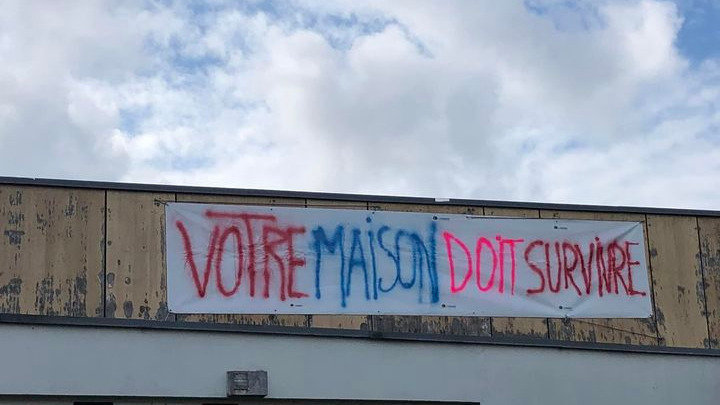 VOTRE MAiSON DOIT SURViVRE